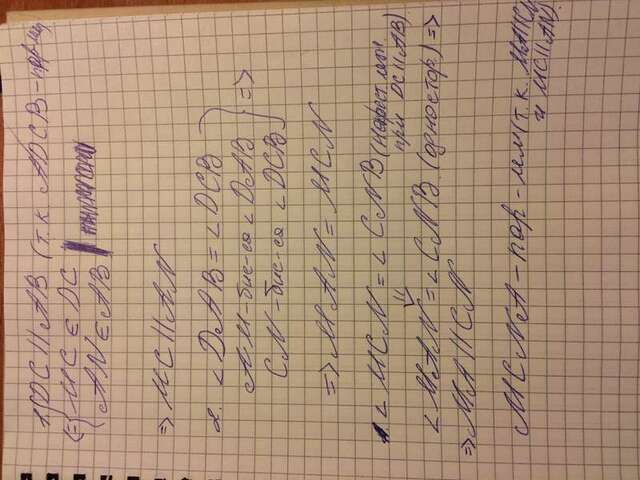 1. DC || AB (т.к. ADCB-пар-мм
MC ∈ DC
AN ∈ AB
=> MC || AN
2. ∠DAB = ∠DCB
AM-бис-са ∠DAB
CN-бис-са ∠DCB =>
=> MAN = MCN
∠MCN = ∠CNB (накрест леж.
при DC || AB)
=
∠MAN = ∠CNB (одностор.) =>
=> MA || CN
MCNA-пар-мм (т.к. MA || CN
и MC || AN)